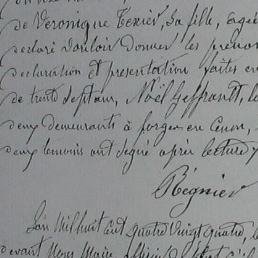 de Véronique Texier, sa fille, agée
déclaré vouloir donner les prénoms
déclaration et présentation faites en
de trente sept ans, Noël Geffrault,
deux demeurants à forges en Cenon,
deux temoins ont signé après lecture
Régnier
L'an mil huit cent quatre vingt quatre, le
devant Nous Maire